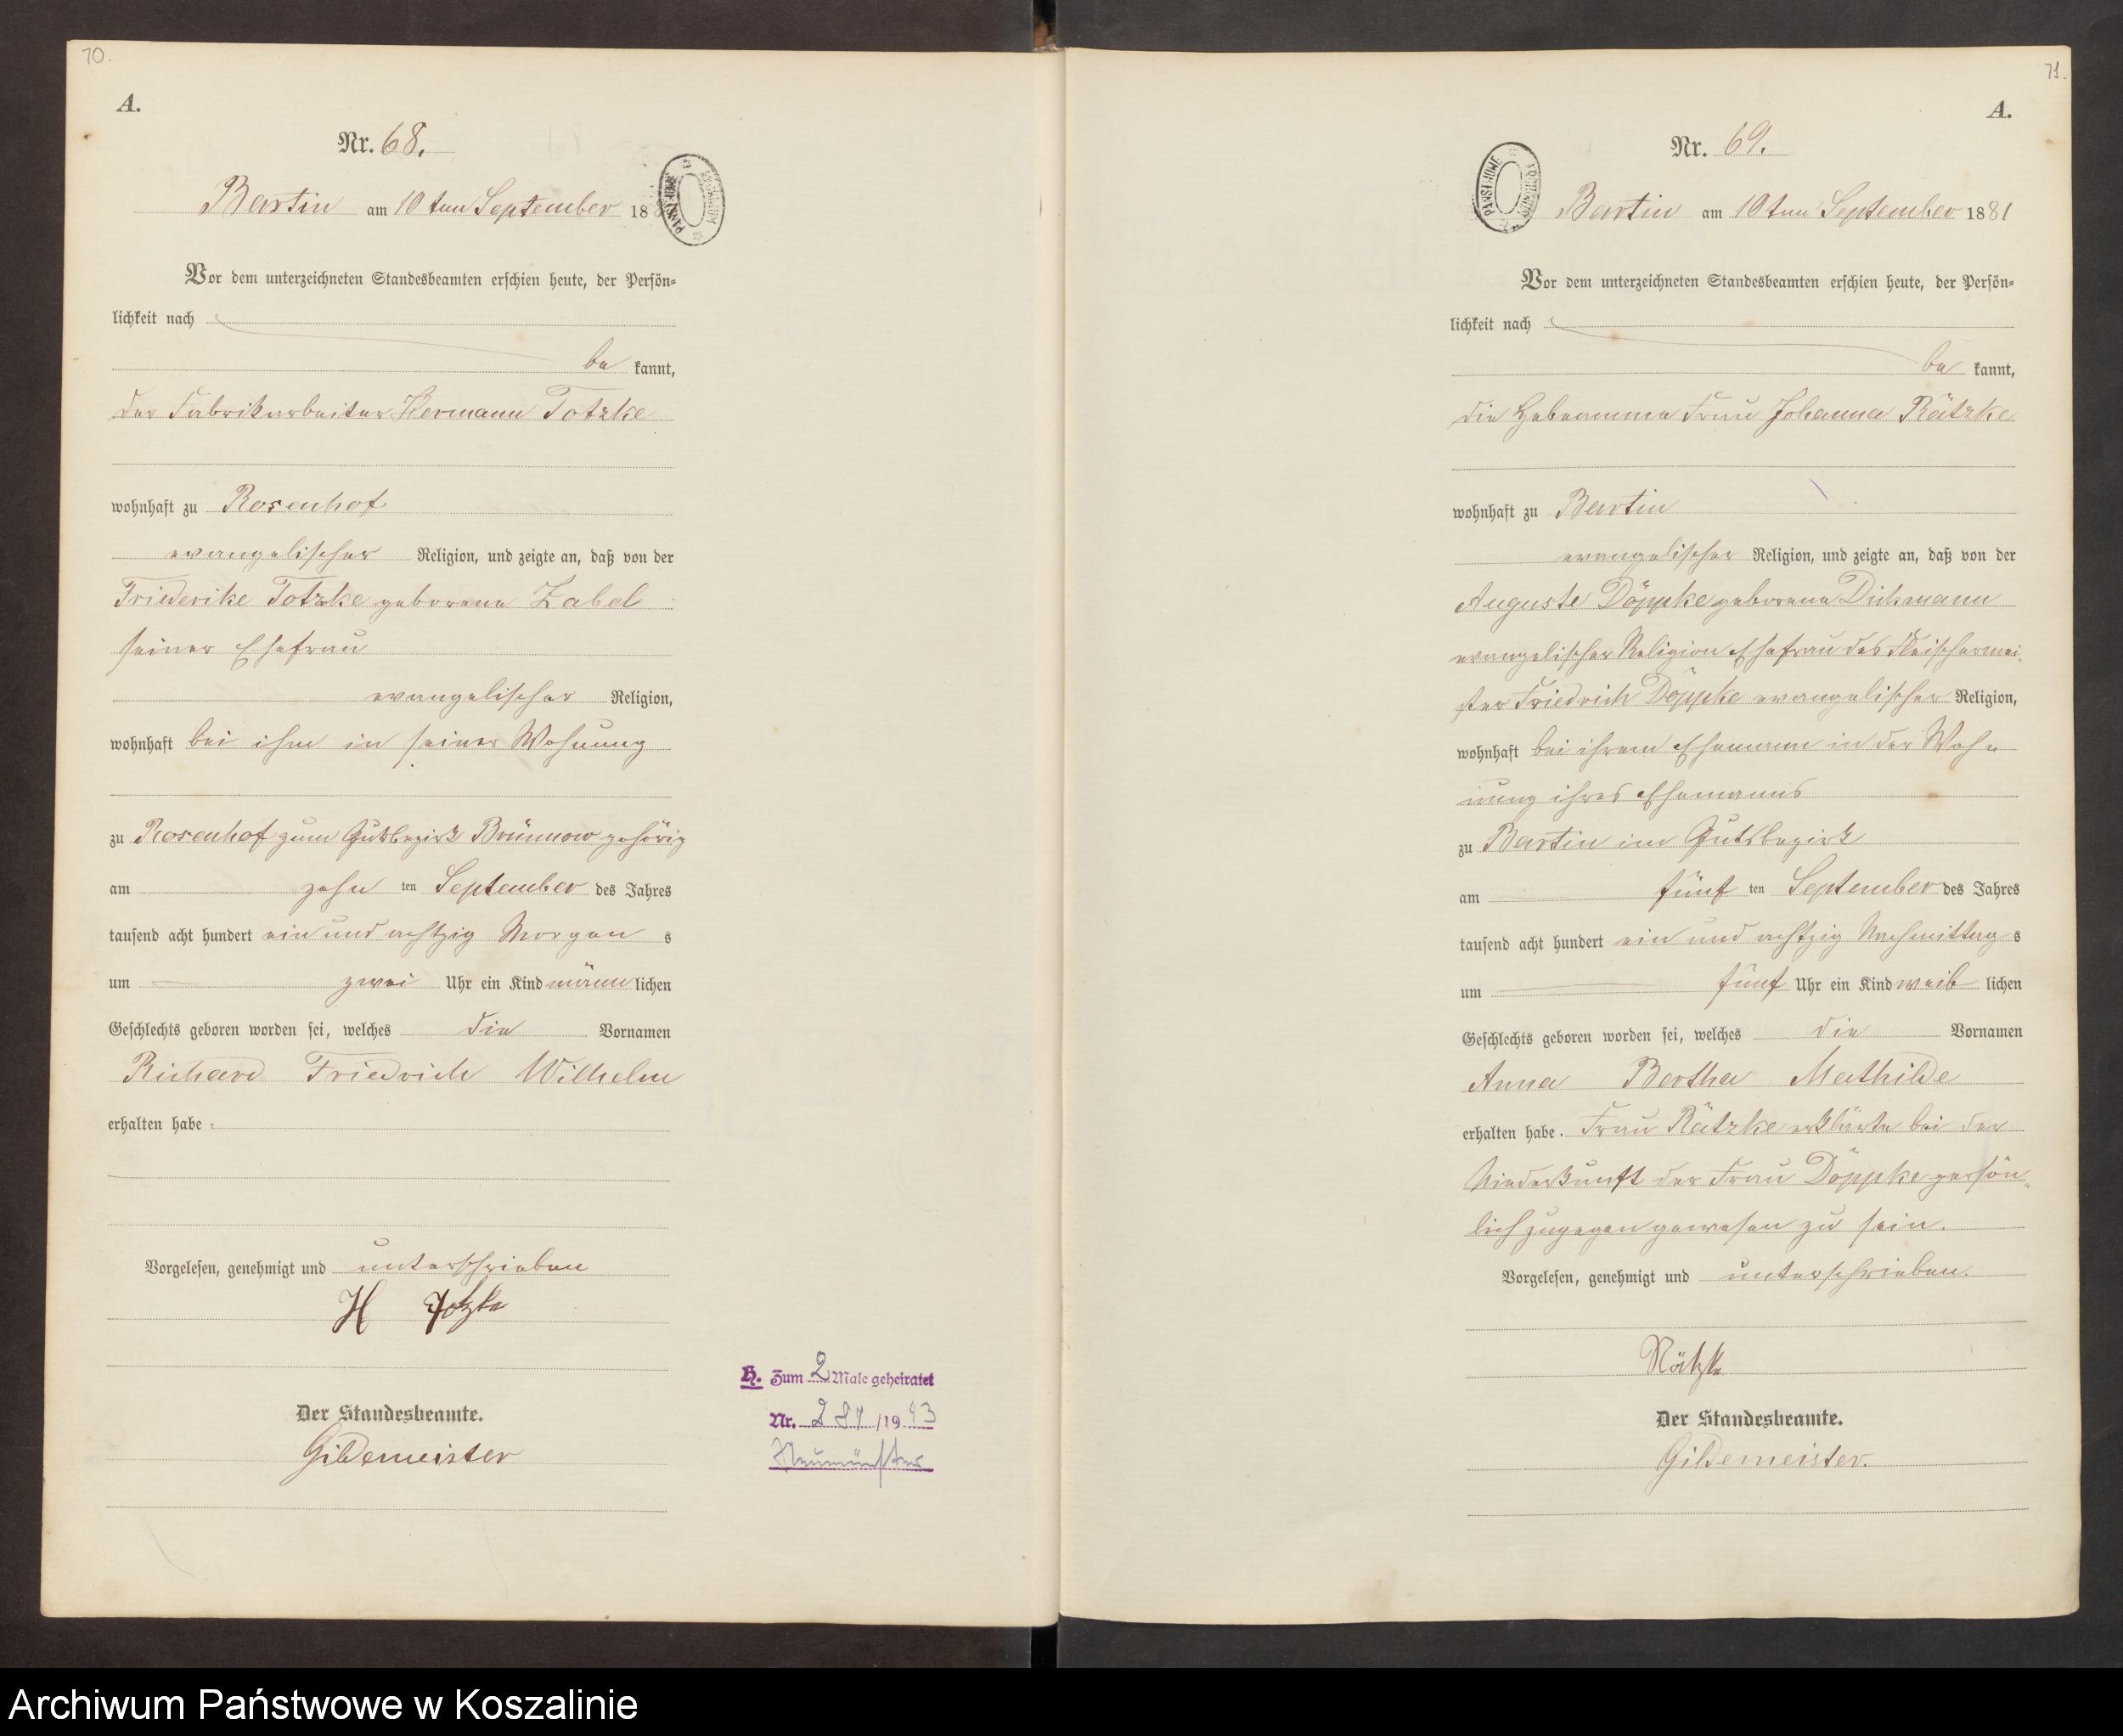 70.
A.
Nr. 68.
Bartin am 10 ten September 188
Vor dem unterzeichneten Standesbeamten erschien heute, der Persön-
lichkeit nach
be kannt,
der Fabrikarbeiter Hermann Totzke
wohnhaft zu Rosenhof
evangelischer Religion, und zeigte an, daß von der
Friederike Totzke geborene Zabel
seiner Ehefrau
evangelischer Religion,
wohnhaft bei ihm in seiner Wohnung
zu Rosenhof zum Gutsbezirk Brünnow gehörig
am zehn ten September des Jahres
tausend acht hundert ein und achtzig Morgen s
um zwei Uhr ein Kind männ lichen
Geschlechts geboren worden sei, welches die Vornamen
Richard Friedrich Wilhelm
erhalten habe.
Vorgelesen, genehmigt und unterschrieben
H Totzke
Der Standesbeamte.
Gildemeister
H. Zum 2 Male geheiratet
Nr. /19 43
Neumünster
71.
A.
Nr. 69.
PAŃSTWOWE ARCHIWUM
Bartin am 10 ten September 1881
Vor dem unterzeichneten Standesbeamten erschien heute, der Persön-
lichkeit nach
be kannt,
die Hebeamme Frau Johanna Rätzke
wohnhaft zu Bartin
evangelischer Religion, und zeigte an, daß von der
Auguste Döppke geborene Dickmann
evangelischer Religion Ehefrau des Fleischermei-
ster Friedrich Döppke evangelischer Religion,
wohnhaft bei ihrem Ehemann in der Woh-
nung ihres Ehemanns
zu Bartin im Gutsbezirk
am fünf ten September des Jahres
tausend acht hundert ein und achtzig Nachmittag s
um fünf Uhr ein Kind weib lichen
Geschlechts geboren worden sei, welches die Vornamen
Anna Bertha Mathilde
erhalten habe. Frau Rätzke erklärte bei der
Niederkunft der Frau Döppke persön-
lich zugegen gewesen zu sein.
Vorgelesen, genehmigt und unterschrieben.
Rätzke
Der Standesbeamte.
Gildemeister.
Archiwum Państwowe w Koszalinie